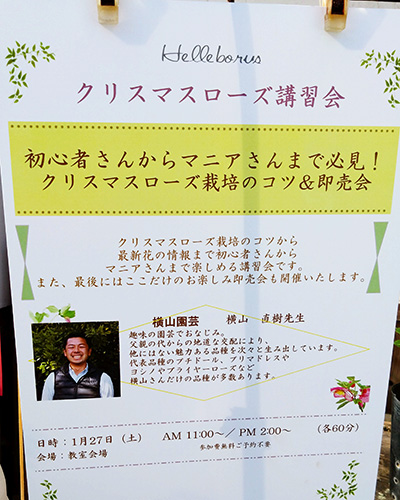 Helleborus
クリスマスローズ講習会
初心者さんからマニアさんまで必見！
クリスマスローズ栽培のコツ＆即売会
クリスマスローズ栽培のコツから
最新花の情報まで初心者さんから
マニアさんまで楽しめる講習会です。
また、最後にはここだけのお楽しみ即売会も開催いたします。
横山園芸　横山　直樹先生
趣味の園芸でおなじみ。
父親の代からの地道な交配により、
他にはない魅力ある品種を次々と生み出しています。
代表品種のプチドール、プリマドレスや
ヨシノやプライヤーローズなど
横山さんだけの品種が多数あります。
日時：1月27日（土）　AM 11:00～／PM 2:00～　（各60分）
会場：教室会場　参加費無料ご予約不要